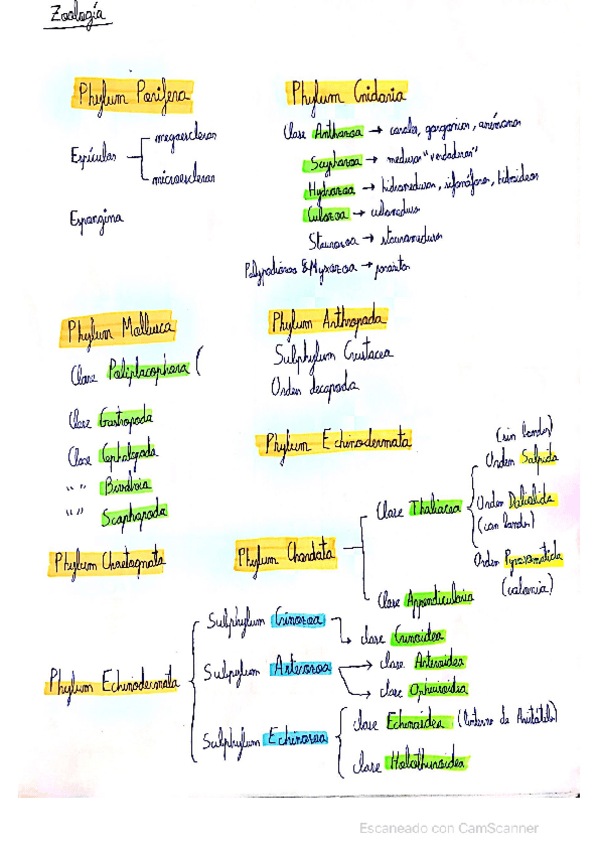 Zoología
Phylum Porifera
Espículas
megascleras
microscleras
Espongina
Phylum Cnidaria
Clase Anthozoa → corales, gorgonias, anémonas
Scyphozoa → medusas "verdaderas"
Hydrozoa → hidromedusas, sifonóforos, hidroideos
Cubozoa → cubomedusas
Staurozoa → stauromedusas
Polypodiozoa & Myxozoa → parásitos
Phylum Mollusca
Clase Poliplacophora (
Clase Gastropoda
Clase Cephalopoda
" " Bivalvia
" " Scaphopoda
Phylum Arthropoda
Subphylum Crustacea
Orden decapoda
Phylum Echinodermata
Phylum Chaetognata
Phylum Chordata
Clase Thaliacea
(sin bandas)
Orden Salpida
Orden Doliolida
(con bandas)
Orden Pyrosomatida
(colonia)
Clase Appendicularia
Phylum Echinodermata
Subphylum Crinozoa
clase Crinoidea
Subpylum Asterozoa
clase Asteroidea
clase Ophiuroidea
Subphylum Echinozoa
clase Echinoidea (linterna de Aristóteles)
clase Holothuroidea
Escaneado con CamScanner